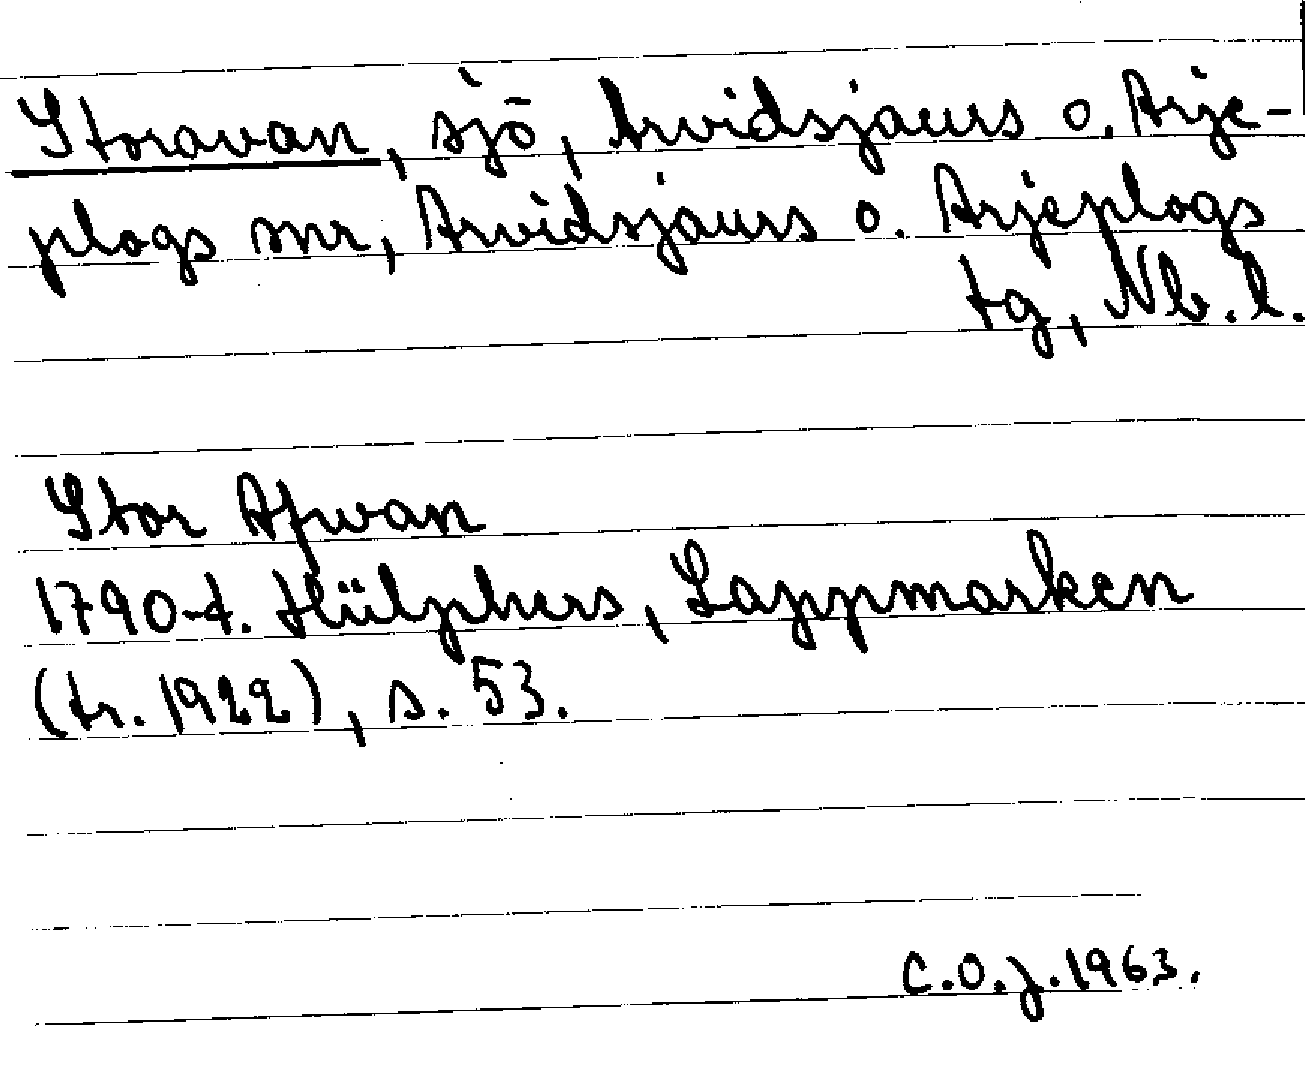 Storavan, sjö, Arvidsjaurs o. Arje-
plogs snr, Arvidsjaurs o. Arjeplogs
tg, Nb.l.
Stor Afwan
1790-t. Hülphers, Lappmarken
(tr. 1922), s. 53.
C.O.J. 1963.